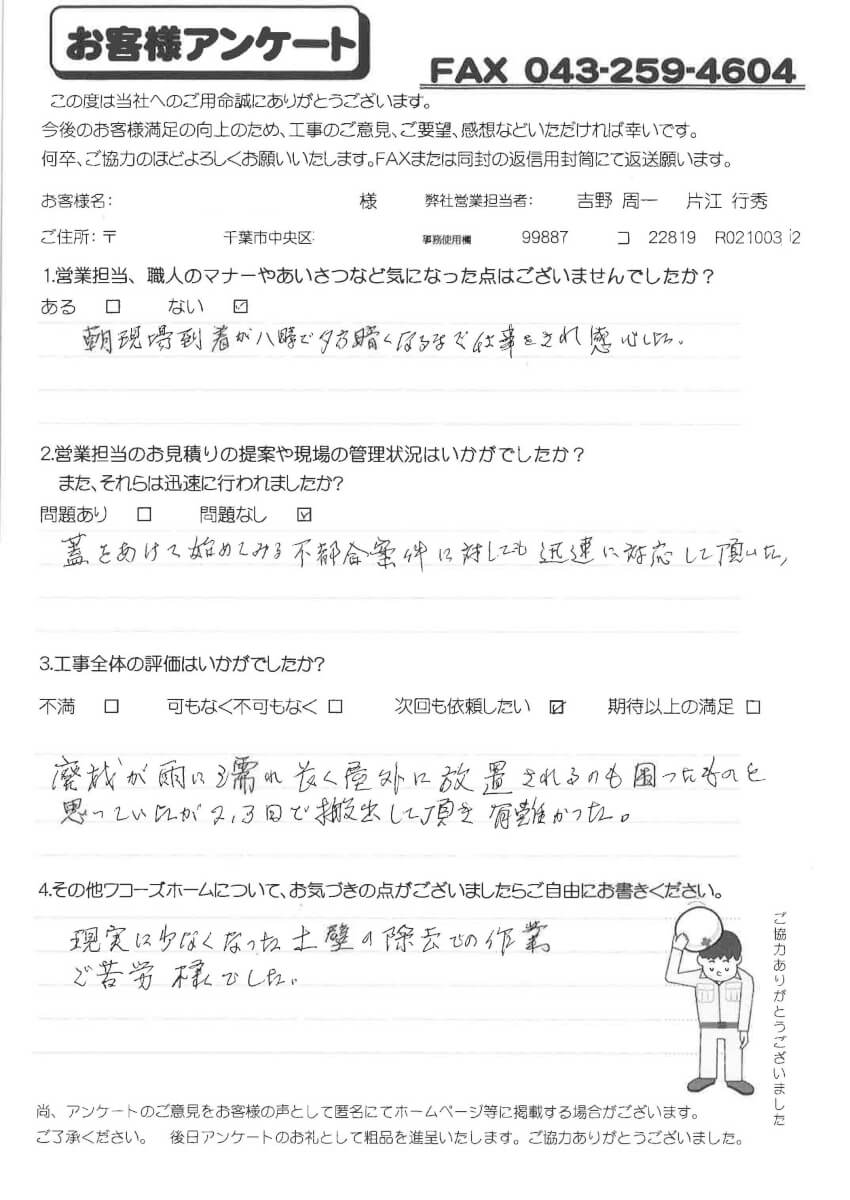 お客様アンケート
FAX 043-259-4604
この度は当社へのご用命誠にありがとうございます。
今後のお客様満足の向上のため、工事のご意見、ご要望、感想などいただければ幸いです。
何卒、ご協力のほどよろしくお願いいたします。FAXまたは同封の返信用封筒にて返送願います。
お客様名: 様 弊社営業担当者: 吉野 周一 片江 行秀
ご住所:〒 千葉市中央区 事務使用欄 99887 コ 22819 R021003 2
1.営業担当、職人のマナーやあいさつなど気になった点はございませんでしたか？
ある □ ない ☑
朝現場到着が八時で夕方暗くなるまで仕事をされ感心した。
2.営業担当のお見積りの提案や現場の管理状況はいかがでしたか？
また、それらは迅速に行われましたか?
問題あり □ 問題なし ☑
蓋をあけて始めてみる不都合案件に対しても迅速に対応して頂いた、
3.工事全体の評価はいかがでしたか?
不満 □ 可もなく不可もなく □ 次回も依頼したい ☑ 期待以上の満足 □
廃材が雨に濡れ長く屋外に放置されるのも困ったものと
思っていたが2,3回で搬出して頂き有難かった。
4.その他ワコーズホームについて、お気づきの点がございましたらご自由にお書きください。
現実に少なくなった土壁の除去での作業
ご苦労様でした。
ご協力ありがとうございました
尚、アンケートのご意見をお客様の声として匿名にてホームページ等に掲載する場合がございます。
ご了承ください。 後日アンケートのお礼として粗品を進呈いたします。ご協力ありがとうございました。